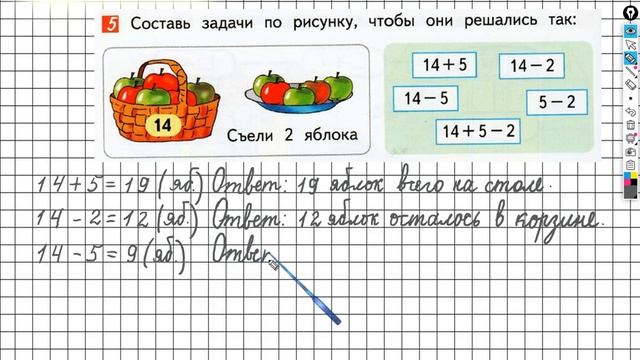 5 Составь задачи по рисунку, чтобы они решались так:
14
Съели 2 яблока
14 + 5
14 – 2
14 – 5
5 – 2
14 + 5 – 2
14 + 5 = 19 (яб.) Ответ: 19 яблок всего на столе.
14 - 2 = 12 (яб.) Ответ: 12 яблок осталось в корзине.
14 - 5 = 9 (яб.) Ответ